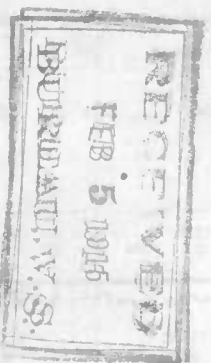 RECEIVED
FEB 5 1916
BUREAU, V. S.